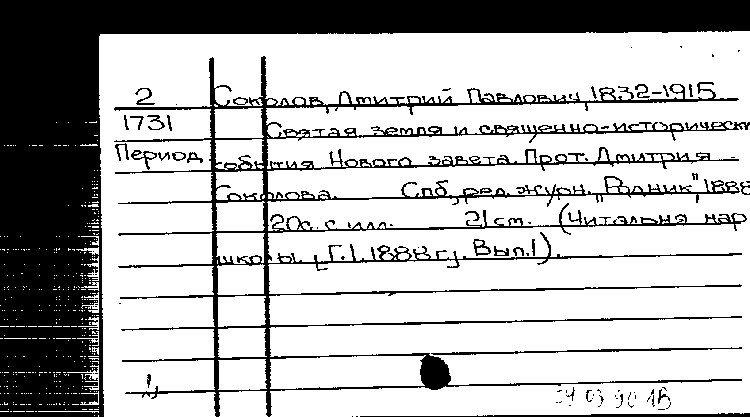 2 Соколов, Дмитрий Павлович, 1832-1915
1731 Святая земля и священно-историческ
Период события Нового завета. Прот. Дмитрия
Соколова. Спб, ред. журн. „Родник”, 1888
20с. с илл. 21 cm. (Читальня нар
школы. [Г.I. 1888 г]. Вып.I).